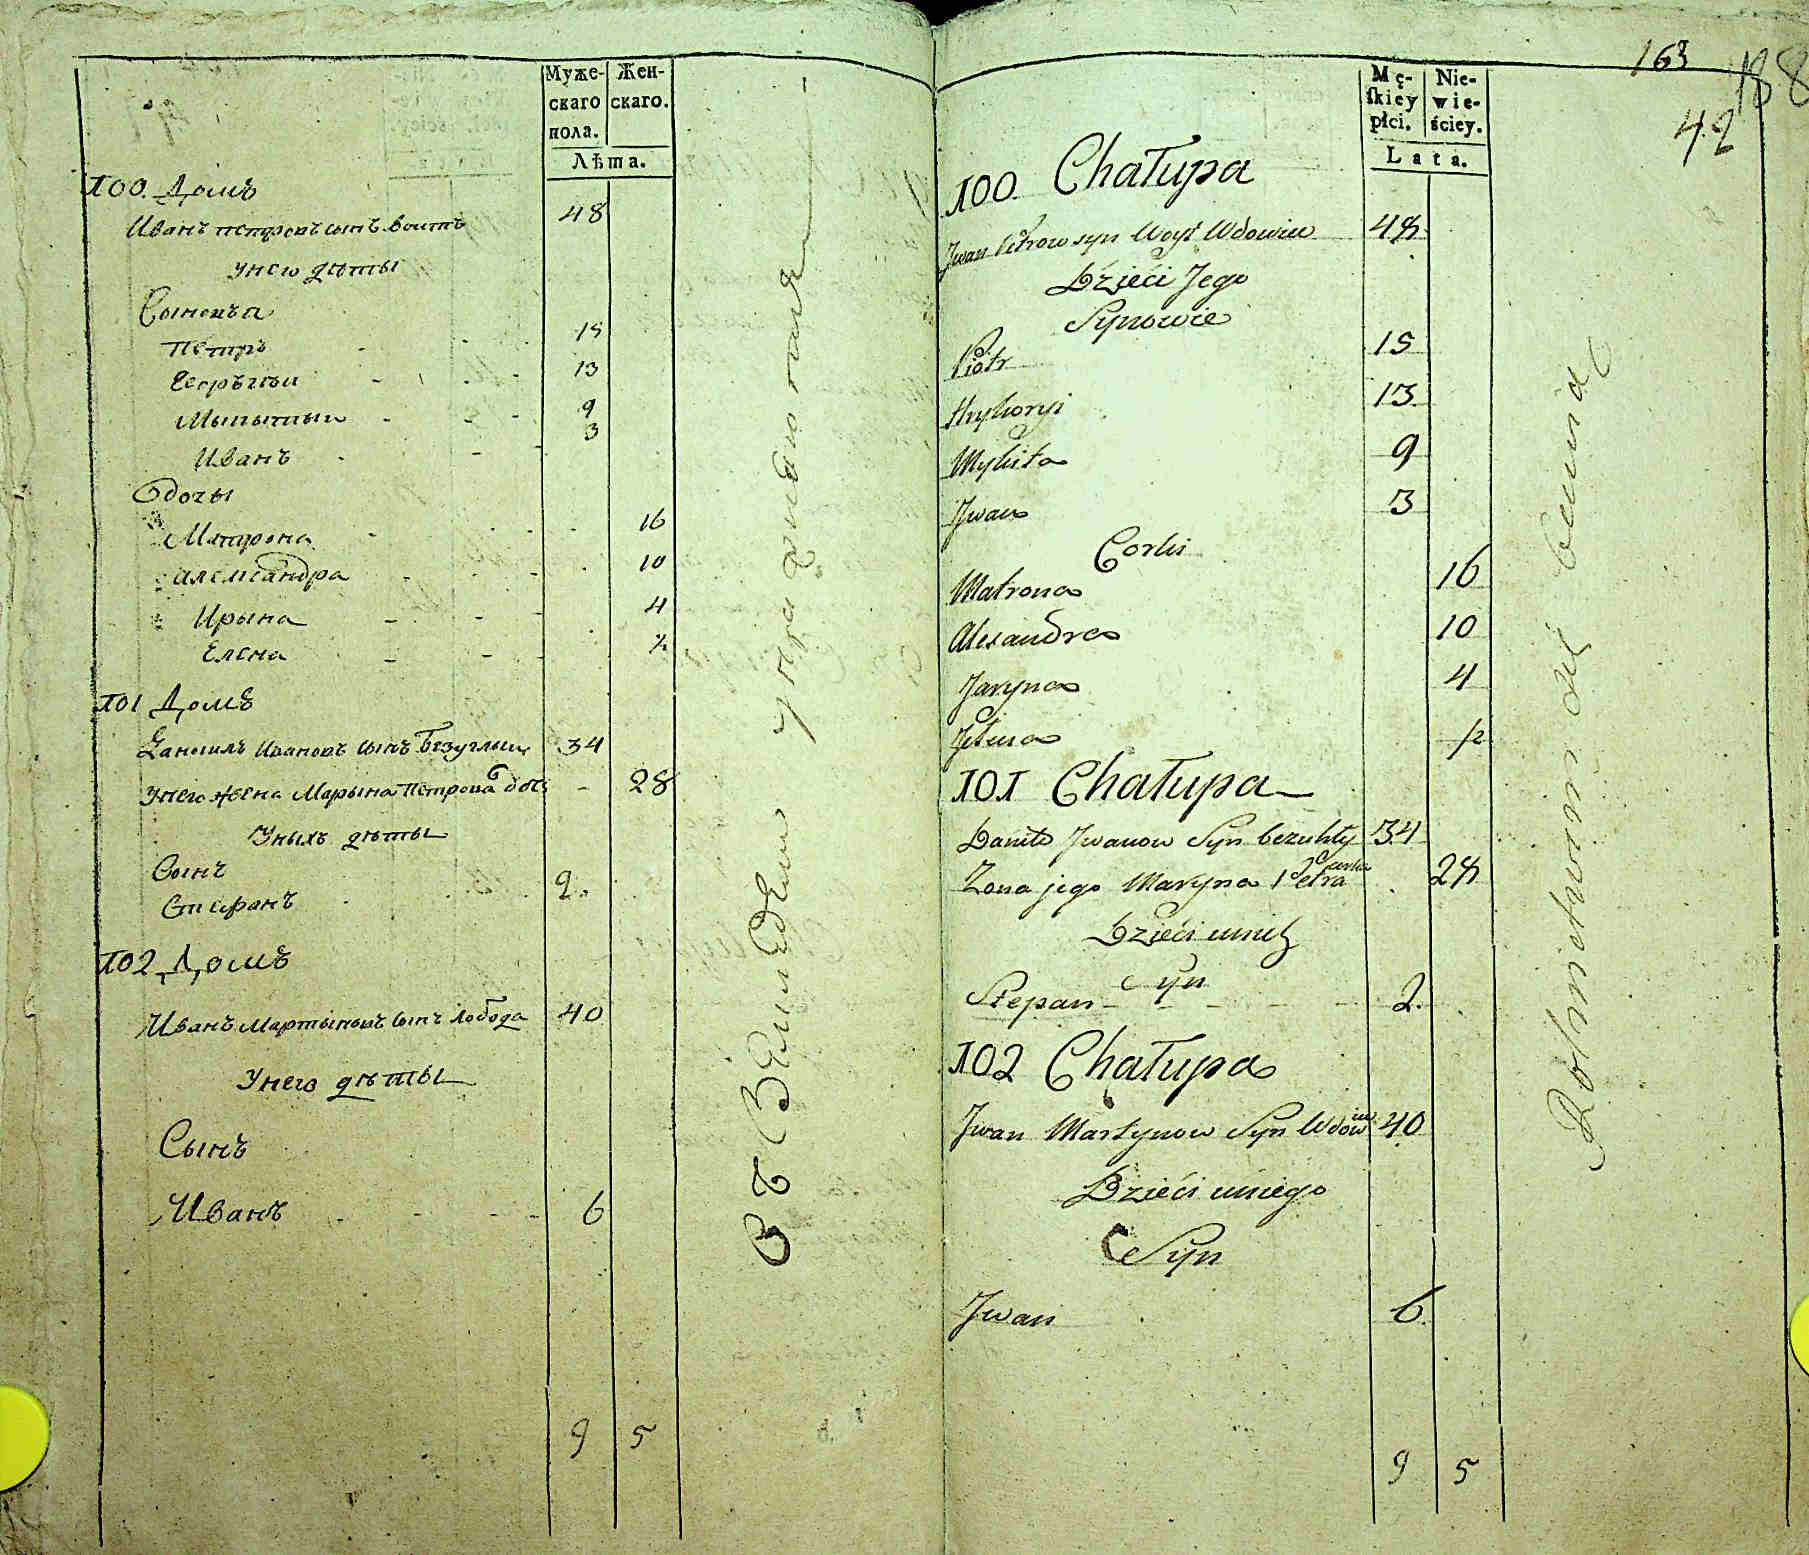 Муже-
скаго
пола.
Жен-
скаго.
Лѣта.
100. Домъ
Иванъ петровъ сынъ воитъ 48
Унего дѣты
Сыновъя
Петръ 15
Григорѣи 13
Мыкытыи 9
Иванъ 3
дочы
Матрона 16
Александра 10
Ирына 4
Елена ½
101 Домъ
Даношлъ Ивановъ сынъ безуглыи 34
Унего жена Марына Петрова дочь 28
Уныхъ дѣты
Сынъ
Стефанъ 2.
102 Домъ
Иванъ Мартыновъ сынъ Лобода 40
Унего дѣты
Сынъ
Иванъ 6
9 5
163
188
42
Mę-
ſkiey
płci.
Nie-
wie-
ściey.
Lata.
100. Chałupa
Jwan Petrow syn Woyt Wdowiec 48
Dzieći Jego
Synowie
Piotr 15
Hryhoryi 13
Mykita 9
Jwan 3
Corki
Matrona 16
Alexandra 10
Jaryna 4
Jelena ½
101 Chałupa
Daniło Jwanow Syn bezuhły 34
Zona jego Maryna Petra curka 28
Dzieći unich
Syn
Stepan 2.
102 Chałupa
Jwan Martynow Syn Wdowiec 40
Dzieći uniego
Syn
Jwan 6
9 5